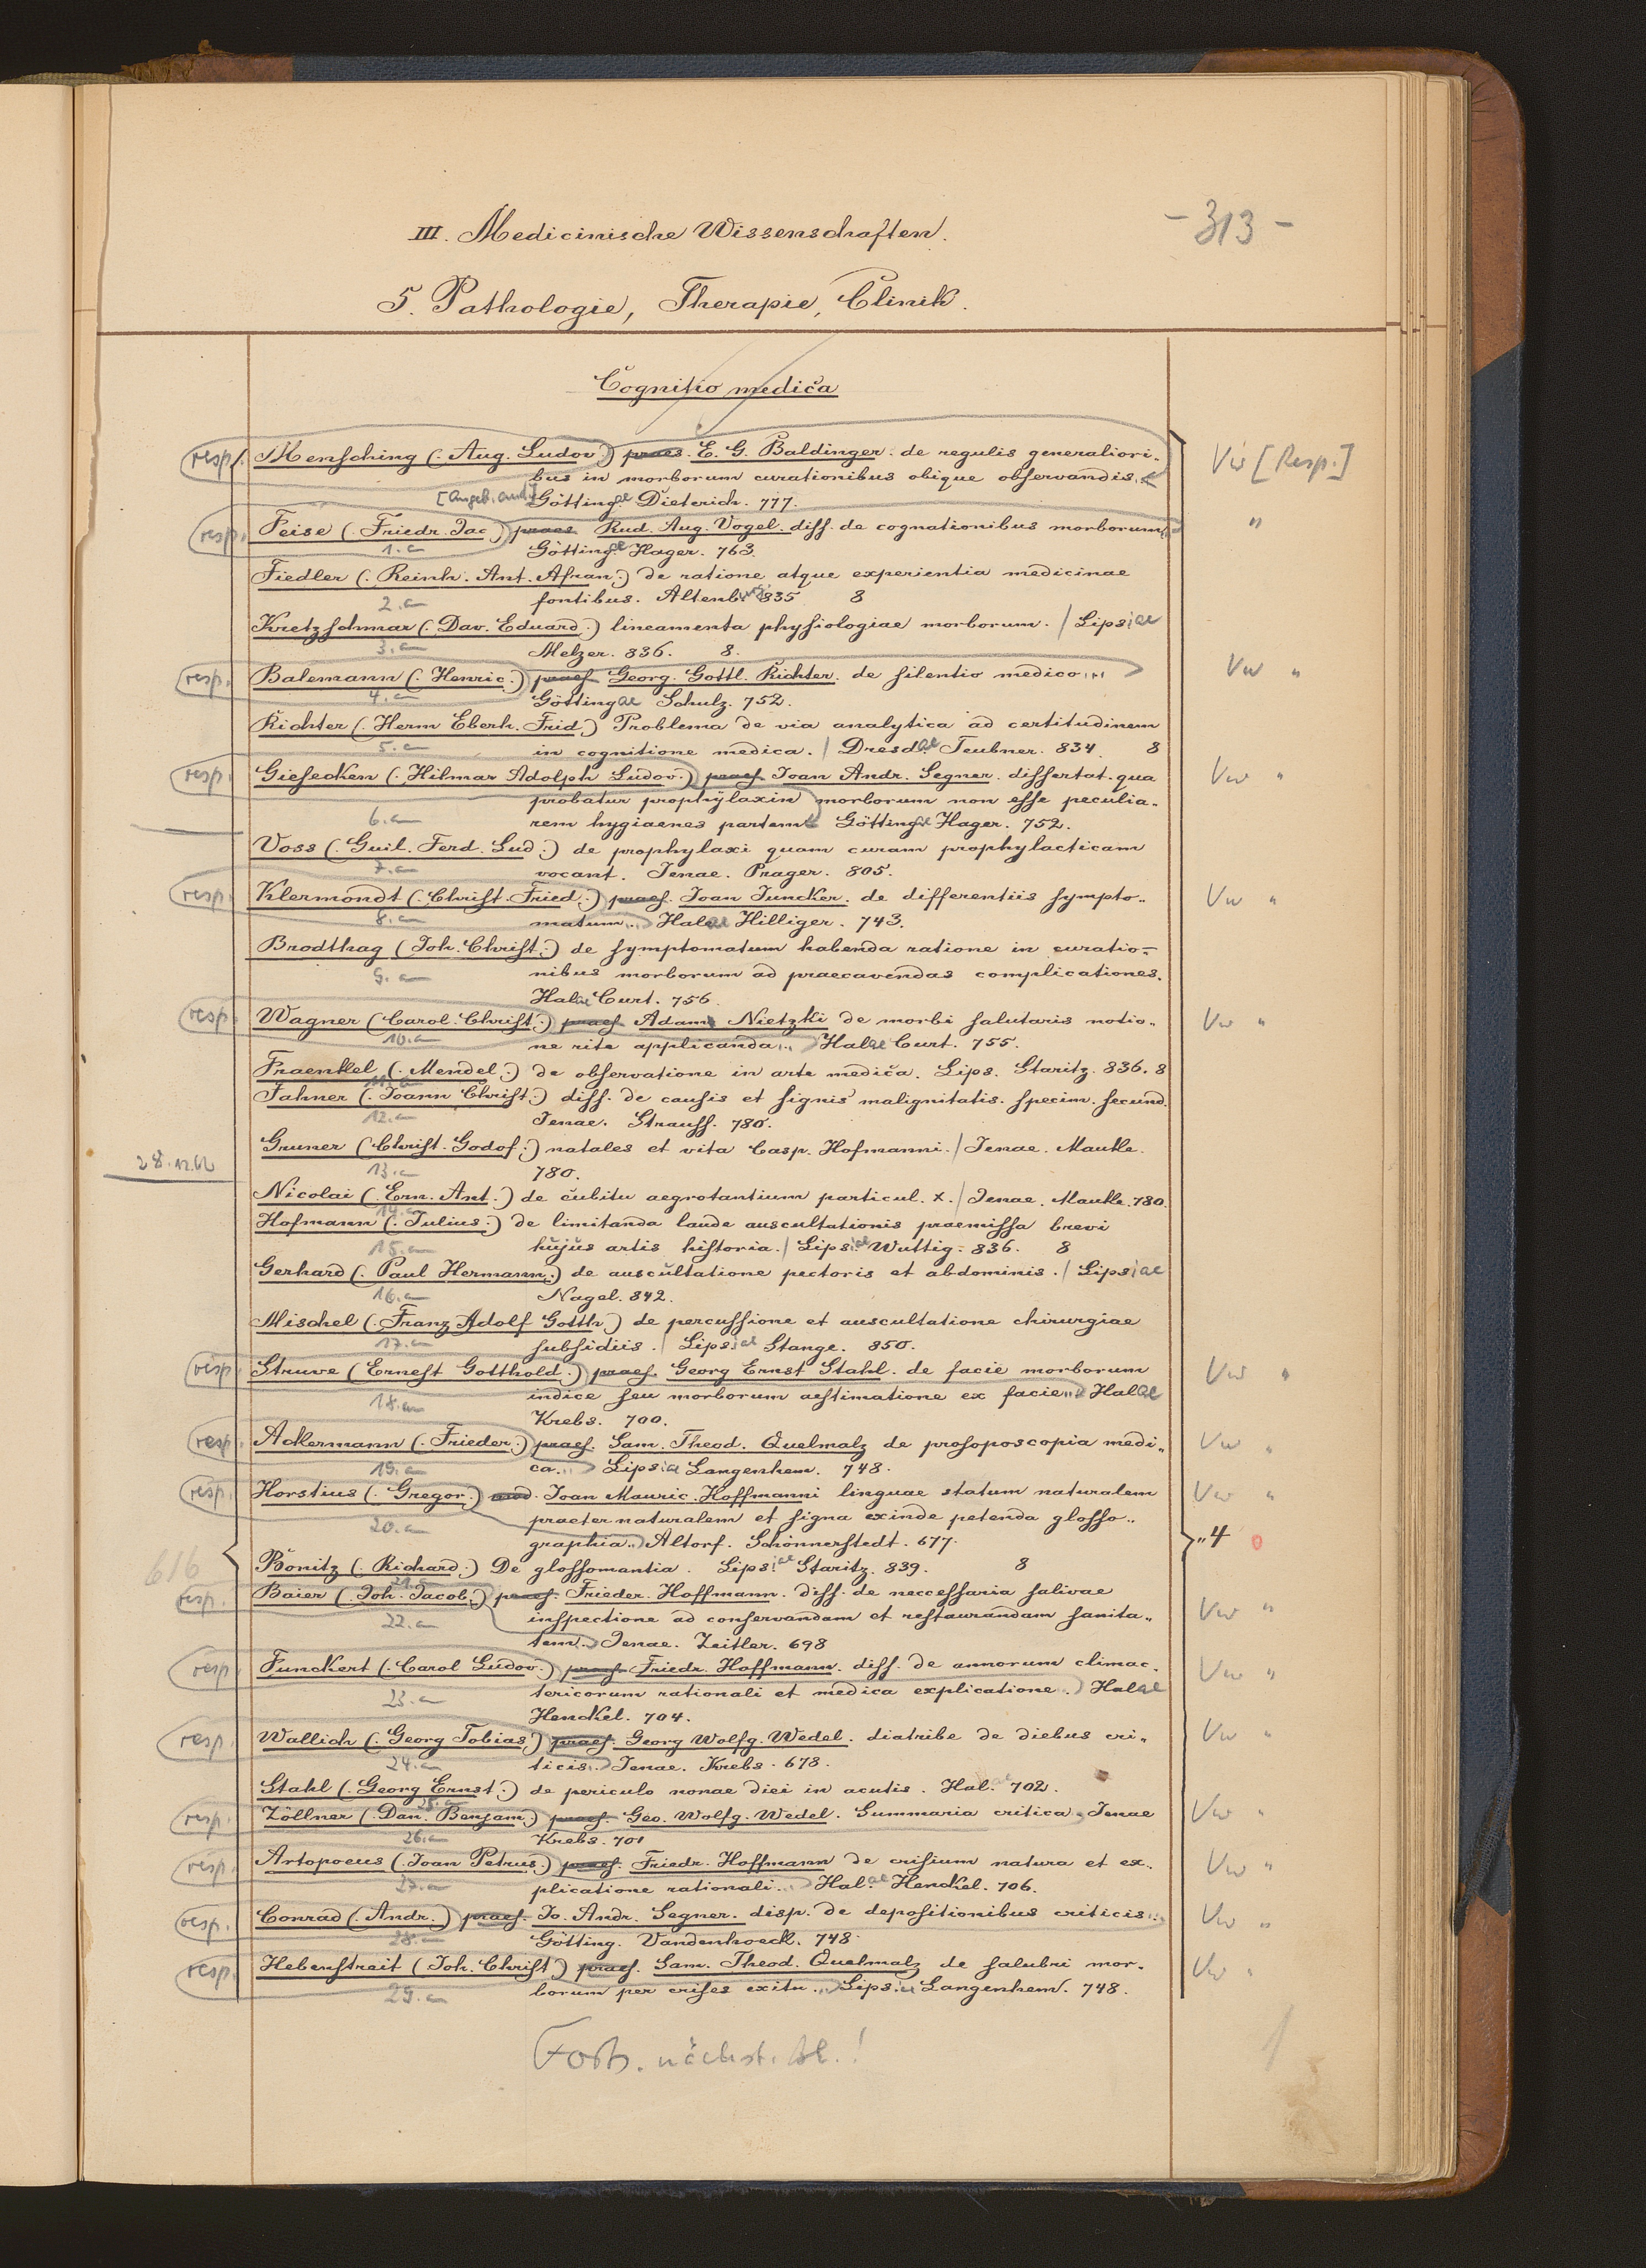 - 313 -
III. Medicinische Wissenschaften.
5. Pathologie, Therapie, Clinik.
Cognitio medica
resp. Mensching (. Aug. Ludov.) praes. E. G. Baldinger. de regulis generaliori- Vw [Resp.]
bus in morborum curationibus obique observandis.
[angeb. and.] Göttingae Dieterich. 777.
resp. Feise (. Friedr. Jac.) praes Rud. Aug. Vogel. diss. de cognationibus morborum "
1. a Göttingae Hager. 763.
Fiedler (. Reinh. Ant. Afran.) de ratione atque experientia medicinae
2. a fontibus. Altenburg 835 8
Kretzschmar (. Dav. Eduard.) lineamenta physiologiae morborum. / Lipsiae
3. a Melzer. 836. 8.
resp. Balemann (. Henric.) praes. Georg. Gottl. Richter. de silentio medico... Vw "
4. a Göttingae Schulz. 752.
Richter (. Herm Eberh. Frid.) Problema de via analytica ad certitudinem
5. a in cognitione medica. / Dresdae Teubner. 834. 8
resp. Giesecken (. Hilmar Adolph Ludov.) praes. Joan Andr. Segner. dissertat. qua Vw "
probatur prophylaxin morborum non esse peculia-
6. a rem hygiaenes partem Göttingae Hager. 752.
Voss (. Guil. Ferd. Lud.) de prophylaxi quam curam prophylacticam
7. a vocant. Jenae. Prager. 805.
resp. Klermondt (. Christ. Fried.) praes. Joan Juncker. de differentiis sympto- Vw "
8. a matum... Halae Hilliger. 743.
Brodthag (Joh. Christ.) de symptomatum habenda ratione in curatio-
9. a nibus morborum ad praecavendas complicationes.
Halae Curt. 756.
resp. Wagner (Carol. Christ.) praes. Adam Nietzki de morbi salutaris notio- Vw "
10. a ne rite applicanda... Halae Curt. 755.
Fraenkel (. Mendel.) de observatione in arte medica. Lips. Staritz. 836. 8
11. a
Jahner (. Joann Christ.) diss. de causis et signis malignitatis. specim. secund.
12. a Jenae. Strauss. 780.
Gruner (Christ. Godof.) natales et vita Casp. Hofmanni. / Jenae. Mauke.
28.12.62 13. a 780.
Nicolai (. Ern. Ant.) de cubitu aegrotantium particul. X. / Jenae. Mauke. 780.
14. a
Hofmann (. Julius.) de limitanda laude auscultationis praemissa brevi
15. a hujus artis historia. / Lipsiae Wuttig. 836. 8
Gerhard (. Paul Hermann.) de auscultatione pectoris et abdominis. / Lipsiae
16. a Nagel. 842.
Mischel (. Franz Adolf Gotth.) de percussione et auscultatione chirurgiae
17. a subsidiis. / Lipsiae Stange. 850.
resp. Struve (Ernest Gotthold.) praes. Georg Ernst Stahl. de facie morborum Vw "
indice seu morborum aestimatione ex facie... Halae
18. a Krebs. 700.
resp. Ackermann (. Frieder.) praes. Sam. Theod. Quelmalz de prosoposcopia medi- Vw "
19. a ca... Lipsiae Langenhem. 748.
resp. Horstius (. Gregor.) Joan Mauric. Hoffmanni linguae statum naturalem Vw "
20. a praeternaturalem et signa exinde petenda glosso-
graphia... Altorf. Schönnerstedt. 677. "4 0
616 Bonitz (. Richard.) De glossomantia. Lipsiae Staritz. 839. 8
21. a
resp. Baier (. Joh. Jacob.) praes. Frieder. Hoffmann. diss. de neccessaria salivae Vw "
22. a inspectione ad conservandam et restaurandam sanita-
tem... Jenae. Zeitler. 698
resp. Funckert (. Carol Ludov.) praes. Friedr. Hoffmann. diss. de annorum climac- Vw "
23. a tericorum rationali et medica explicatione. Halae
Henckel. 704.
resp. Wallich (. Georg Tobias) praes. Georg Wolfg. Wedel. diatribe de diebus cri- Vw "
24. a ticis... Jenae. Krebs. 678.
Stahl (. Georg Ernst.) de periculo nonae diei in acutis. Halae 702.
25. a
resp. Zöllner (. Dan. Benjam.) praes. Geo. Wolfg. Wedel. Summaria critica Jenae Vw "
26. a Krebs. 701
resp. Artopoeus (. Joan Petrus.) praes. Friedr. Hoffmann de crisium natura et ex- Vw "
27. a plicatione rationali... Halae Henckel. 706.
resp. Conrad (. Andr.) praes. Jo. Andr. Segner. disp. de depositionibus criticis... Vw "
28. a Götting. Vandenhoeck. 748.
resp. Hebenstreit (Joh. Christ.) praes. Sam. Theod. Quelmalz de salubri mor- Vw "
29. a borum per crises exitu... Lipsiae Langenhem. 748.
Forts. nächst. Bl.! 1